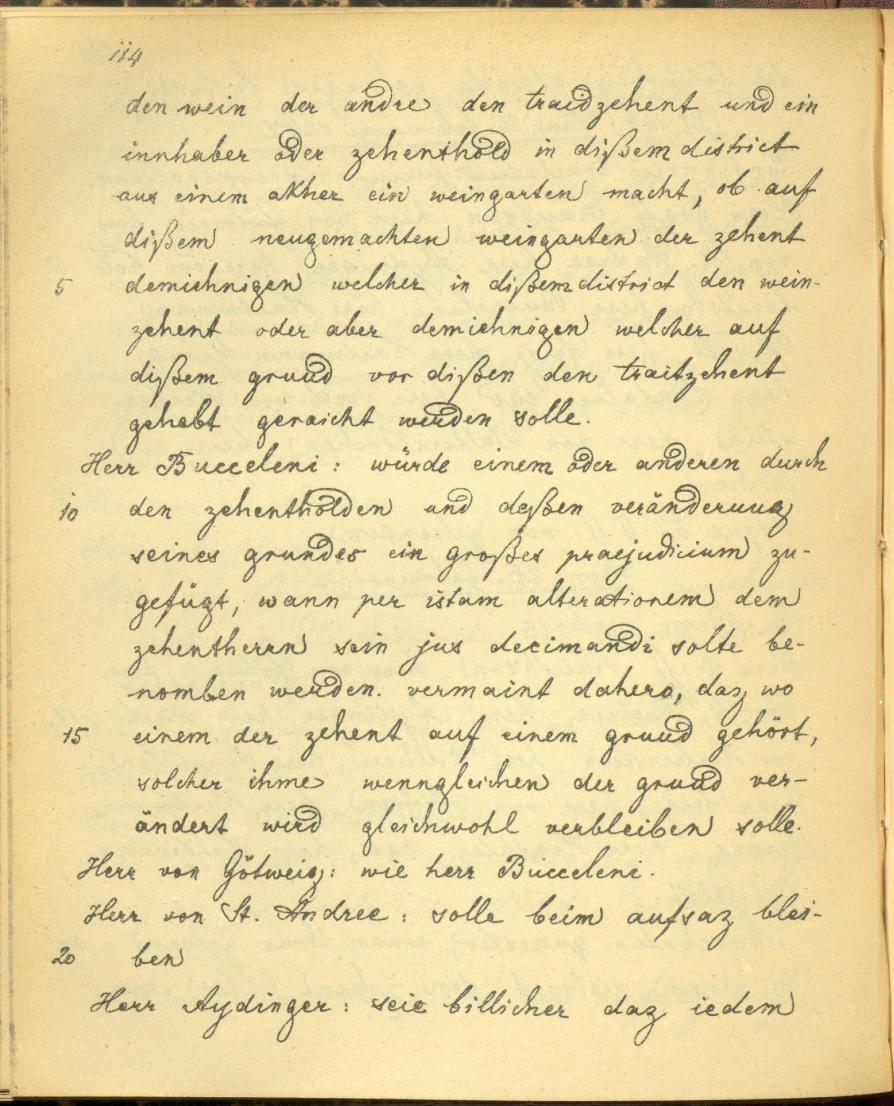 114
den wein der andre den traidzehent und ein
innhaber oder zehenthold in dißem district
aus einem akher ein weingarten macht, ob auf
dißem neugemachten weingarten der zehent
5 demiehnigen welcher in dißem district den wein-
zehent oder aber demiehnigen welcher auf
dißem grund vor dißen den traitzehent
gehabt geraicht werden solle.
Herr Bucceleni: würde einem oder anderen durch
10 den zehentholden und deßen veränderung
seines grundes ein großes praejudicium zu-
gefügt, wann per istam alterationem dem
zehentherrn sein jus decimandi solte be-
nomben werden. vermaint dahero, daz wo
15 einem der zehent auf einem grund gehört,
solcher ihme wenngleichen der grund ver-
ändert wird gleichwohl verbleiben solle.
Herr von Götweig: wie herr Bucceleni.
Herr von St. Andree: solle beim aufsaz blei-
20 ben
Herr Aydinger: seie billicher daz iedem